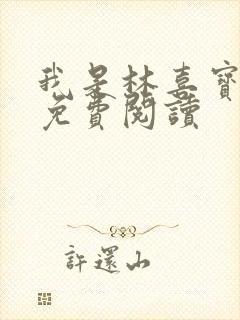 我是林喜寶
免費閱讀
許還山